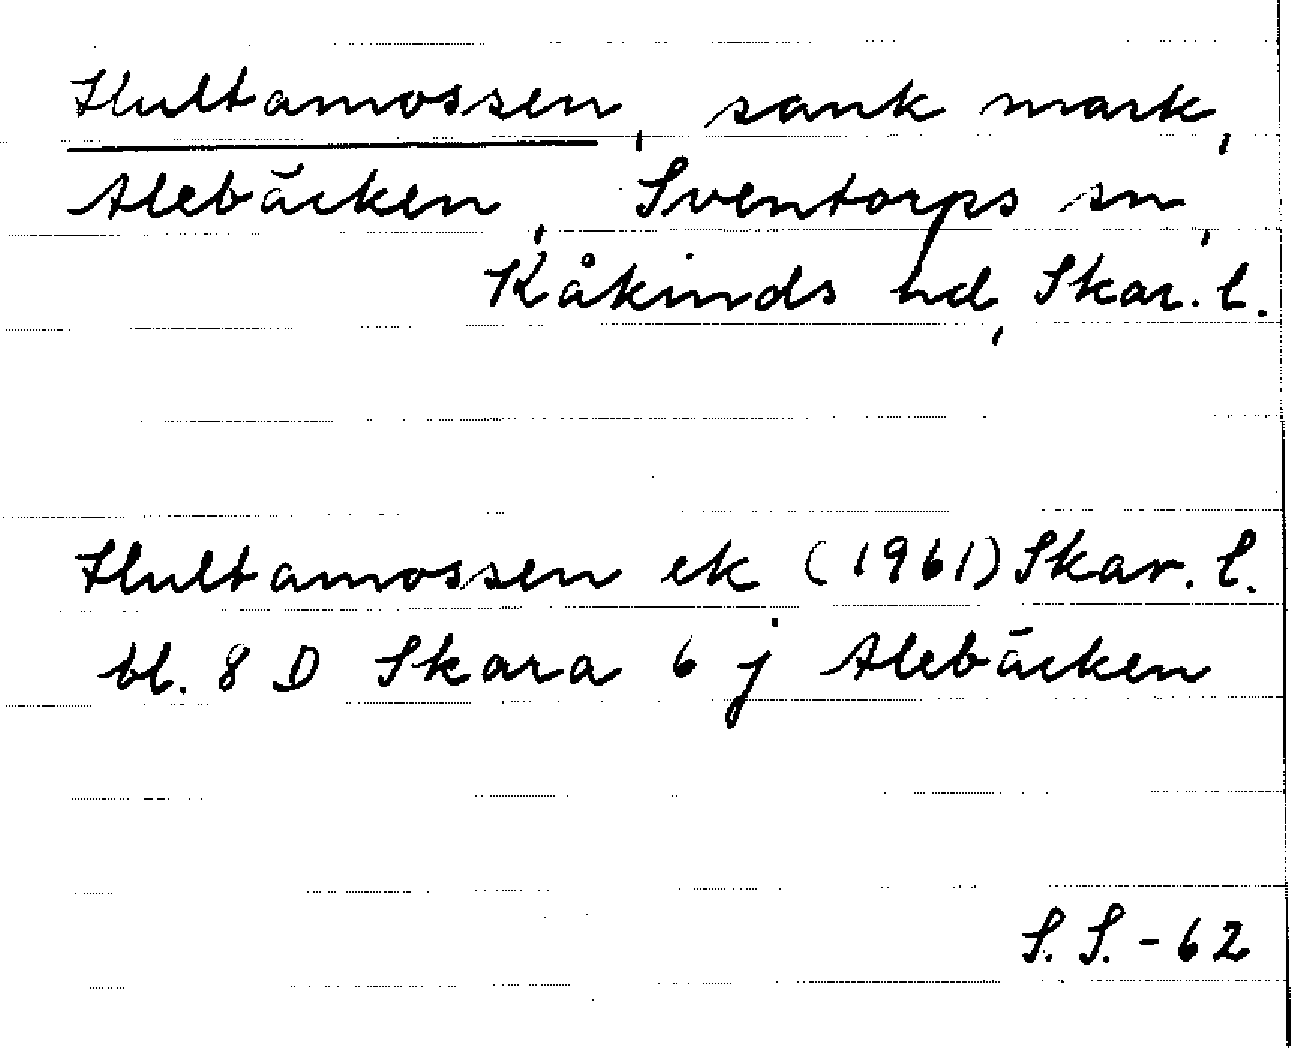 Hultamossen, sank mark,
Alebäcken, Sventorps sn,
Kåkinds hd, Skar. l.
Hultamossen ek (1961) Skar. l.
bl. 8 D Skara 6 j Alebäcken
S. S. - 62